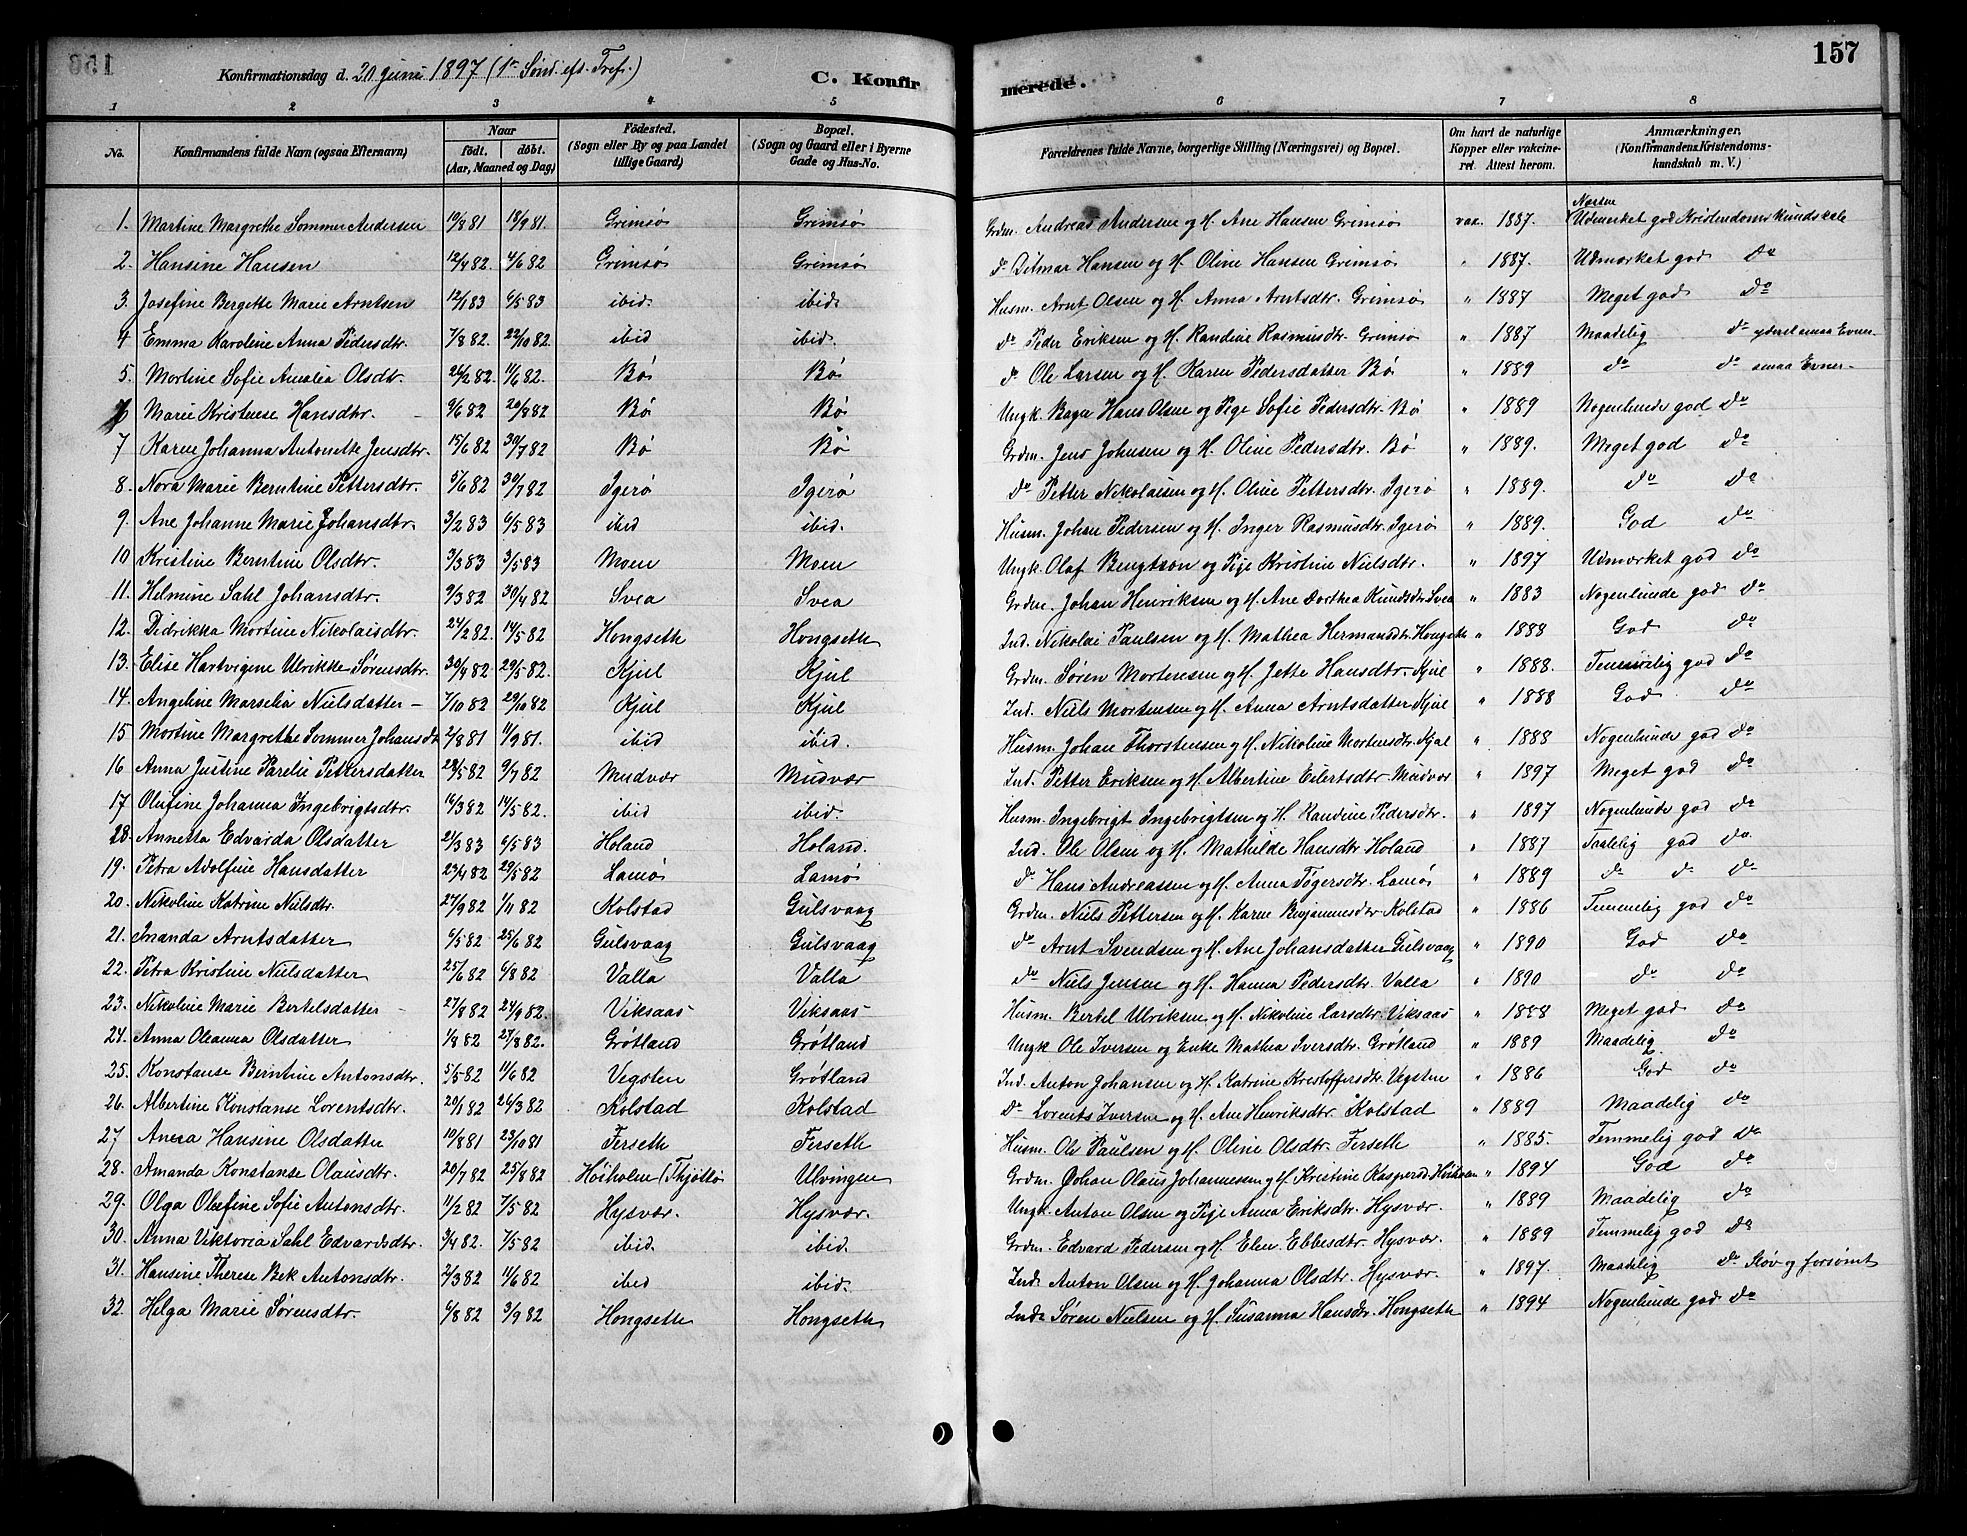 Konfirmationsdag d. 20 Juni 1897 (1ste Sønd. eft. Tref.)
C. Konfirmerede.
157
1 2 3 4 5 6 7 8
No.
Konfirmandens fulde Navn (ogsaa Efternavn)
Naar født. døbt. (Aar, Maaned og Dag)
Födested. (Sogn eller By og paa Landet tillige Gaard)
Bopæl. (Sogn og Gaard eller i Byerne Gade og Hus-No.
Forældrenes fulde Navne, borgerlige Stilling (Næringsvei) og Bopæl.
Om havt de naturlige Kopper eller vakcineret. Attest herom.
Anmærkninger. (Konfirmandens Kristendomskundskab m. V.)
1. Martine Margrethe Sommer Andersen 10/8 81 18/9 81. Grimsø Grimsø Grdm. Andreas Andersen og H. Ane Hansen Grimsø vax. 1887. Næsten Udmerket god Kristendomskundskab
2. Hansine Hansen 12/4 82. 4/6 82 Grimsø Grimsø do Ditmar Hansen og H. Oline Hansen Grimsø " 1887. Udmærket god do
3. Josefine Bergitte Marie Arntsen 12/1 83 6/5 83 ibid. ibid. Husm. Arnt Olsen og H. Anna Arntsdtr. Grimsø " 1887 Meget god do
4 Emma Karoline Anna Pedersdtr. 7/8 82. 22/10 82. ibid ibid. do Peder Eriksen og H. Randine Rasmusdtr. Grimsø " 1887 Maadelig do yderst smaa Evner
5. Mortine Sofie Amalia Olsdtr. 26/2 82. 11/6 82. Bø Bø do Ole Larsen og H. Karen Pedersdatter Bø " 1889 do do smaa Evner
6 Marie Kristense Hansdtr. 9/6 82 20/8 82 Bø Bø Ungk. Hans Olsen og Pige Sofie Pedersdtr. Bø " 1889 Nogenlunde god do
7 Karen Johanna Antonette Jensdtr. 15/6 82 30/7 82 Bø Bø Grdm. Jens Johnsen og H. Oline Pedersdtr. Bø " 1889. Meget god do
8. Nora Marie Berntine Pettersdtr. 5/6 82 30/7 82 Igerø Igerø do Petter Nikolaisen og H. Oline Pettersdtr. Igerø " 1889. do do
9. Ane Johanne Marie Johansdtr. 3/2 83 6/5 83 ibid ibid. Husm. Johan Pedersen og H. Inger Rasmusdtr. Igerø " 1889. God do
10 Kristine Berntine Olsdtr. 3/3 83 3/5 83 Moen Moen Ungk. Olaf Bengtson og Pige Kristine Nielsdtr. " 1897 Udmærket god do
11. Helmine Sahl Johansdtr. 9/3 82 30/4 82 Svea Svea Grdm. Johan Henriksen og H. Ane Dorthea Knudsdtr Svea " 1883 Nogenlunde god do
12. Didrikka Mortine Nikolaisdtr. 24/2 82. 14/5 82 Hongseth Hongseth Ind. Nikolai Paulsen og H. Mathea Hermansdtr. Hongseth " 1888 God do
13. Elise Hartvigine Ulrikke Sørensdtr. 30/4 82. 29/5 82. Kjul Kjul Grdm. Søren Mortensen og H. Jette Hansdtr. Kjul " 1888. Temmelig god do
14. Angeline Marselia Nielsdatter 7/10 82 29/10 82 Kjul Kjul Ind. Niels Mortensen og H. Anna Arntsdatter Kjul " 1888 God do
15 Mortine Margrethe Sommer Johansdtr 2/8 81 11/9 81. ibid ibid. Husm. Johan Thorstensen og H. Nikoline Mortensdtr. Kjul " 1888 Nogenlunde god do
16 Anna Justine Parelie Pettersdatter 28/5 82 9/7 82 Mudvær Mudvær Ind. Petter Eriksen og H. Albertine Eilertsdtr. Mudvær " 1897 Meget god do
17 Olufine Johanna Ingebrigtsdtr. 16/3 82 14/5 82. ibid ibid. Husm. Ingebrigt Ingebrigtsen og H. Randine Pedersdtr. " 1897 Nogenlunde god do
18. Annetta Edvarda Olsdatter 21/3 83 6/5 83 Holand Holand. Ind. Ole Olsen og H. Mathilde Hansdtr Holand " 1887 Taalelig god do
19. Petra Adolfine Hansdatter 23/4 82 29/5 82 Lamø Lamø do Hans Andreassen og H. Anna Tøgersdtr. Lamø " 1889 do do do
20. Nikoline Katrine Nielsdtr. 27/9 82 1/11 82 Kolstad Gulsvaag Grdm. Niels Pettersen og H. Karen Benjaminsdtr Kolstad " 1886 Temmelig god do
21. Inanda Arntsdatter 6/5 82 25/6 82 Gulsvaag Gulsvaag do Arnt Svendsen og H. Ane Johansdatter Gulsvaag " 1890 God do
22. Petra Kristine Nielsdatter 25/6 82 6/8 82 Valla Valla do Niels Jensen og H. Hanna Pedersdtr. Valla " 1890 do do
23. Nikoline Marie Bertelsdatter 27/8 82 24/9 82. Viksaas Viksaas Husm. Bertel Ulriksen og H. Nikoline Larsdtr. Viksaas " 1888 Meget god do
24. Anna Oleanna Olsdatter 1/8 82 27/8 82. Grøtland Grøtland Ungk Ole Iversen og Enke Mathea Iversdtr. Grøtland " 1889 Maadelig. do
25. Konstanse Berntine Antonsdtr. 5/5 82 11/6 82 Vegsten Grøtland Ind. Anton Johansen og H. Katrine Kristoffersdtr. Vegsten " 1886 God do
26. Albertine Konstanse Lorentsdtr. 20/1 82 26/3 82 Kolstad Kolstad do Lorents Iversen og H. Ane Henriksdtr. Kolstad " 1889 Maadelig do
27 Anna Hansine Olsdatter 10/8 81 23/10 81 Ferseth Ferseth Husm. Ole Paulsen og H. Oline Olsdtr. Ferseth " 1885. Temmelig god do
28. Amanda Konstanse Olausdtr. 20/7 82 25/8 82 Høiholm (Thjøttø Ulvingen Grdm. Johan Olaus Johannesen og H. Kristine Kaspersd. Høiholm " 1894 God do
29. Olga Olefine Sofie Antonsdtr. 11/2 82 7/5 82 Hysvær. Hysvær. Ungk. Anton Olsen og Pige Anna Eriksdtr. Hysvær. " 1889 Maadelig do
30. Anna Viktoria Sahl Edvardsdtr. 3/4 82. 7/5 82 ibid. ibid. Grdm. Edvard Pedersen og H. Elen Ebbesdtr. Hysvær. " 1889 Temmelig god do
31. Hansine Therese Bek Antonsdtr. 2/3 82 11/6 82 ibid ibid. Ind. Anton Olsen og H. Johanna Olsdtr. Hysvær. " 1897. Maadelig do Sløv og forsømt
32. Helga Marie Sørensdtr. 6/8 82 3/9 82 Hongseth Hongseth Ind. Søren Nielsen og H. Susanna Hansdtr. Hongseth " 1894 Nogenlunde god do